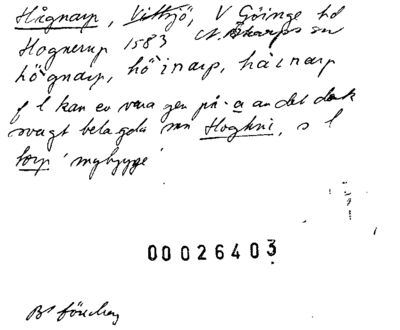 Hågnarp, Vittsjö, V Göinge hd
Hognerup 1583
högnarp, höinarp, håinarp
f l kan ev vara gen på -a av det dock
svagt belagda mn Hoghni, s l
torp 'nybygge'
00026403